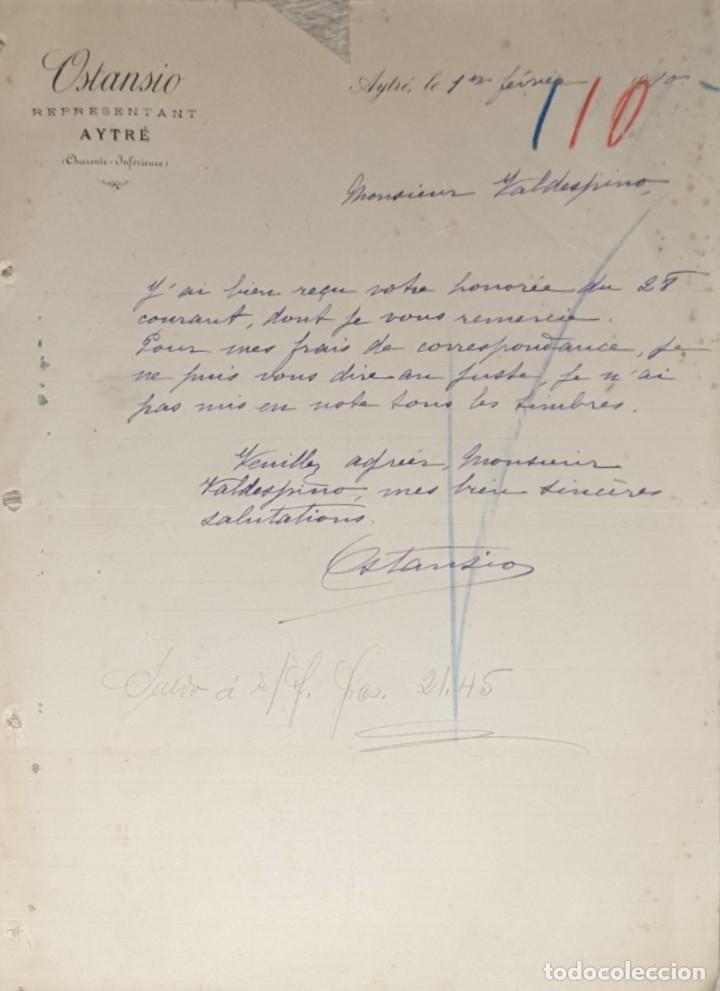 Ostansio
REPRESENTANT
AYTRÉ
(Charente-Inférieure)
Aytré, le 1er février 1910
110
Monsieur Valdespino,
J'ai bien reçu votre honorée du 28
courant, dont je vous remercie.
Pour mes frais de correspondance, je
ne puis vous dire au juste, je n'ai
pas mis en note tous les timbres.
Veuillez agréer, Monsieur
Valdespino, mes bien sincères
salutations.
Ostansio
Saldo á s/f. frcs. 21.45
todocoleccion